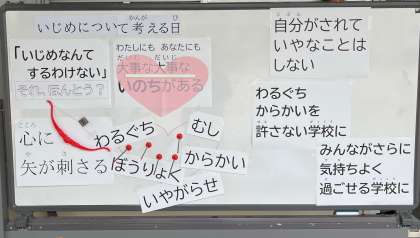 いじめについて考える日
「いじめなんて
するわけない」
それ、ほんとう？
わたしにも あなたにも
大事な大事な
いのちがある
心に
矢が刺さる
わるぐち
むし
からかい
ぼうりょく
いやがらせ
自分がされて
いやなことは
しない
わるぐち
からかいを
許さない学校に
みんながさらに
気持ちよく
過ごせる学校に